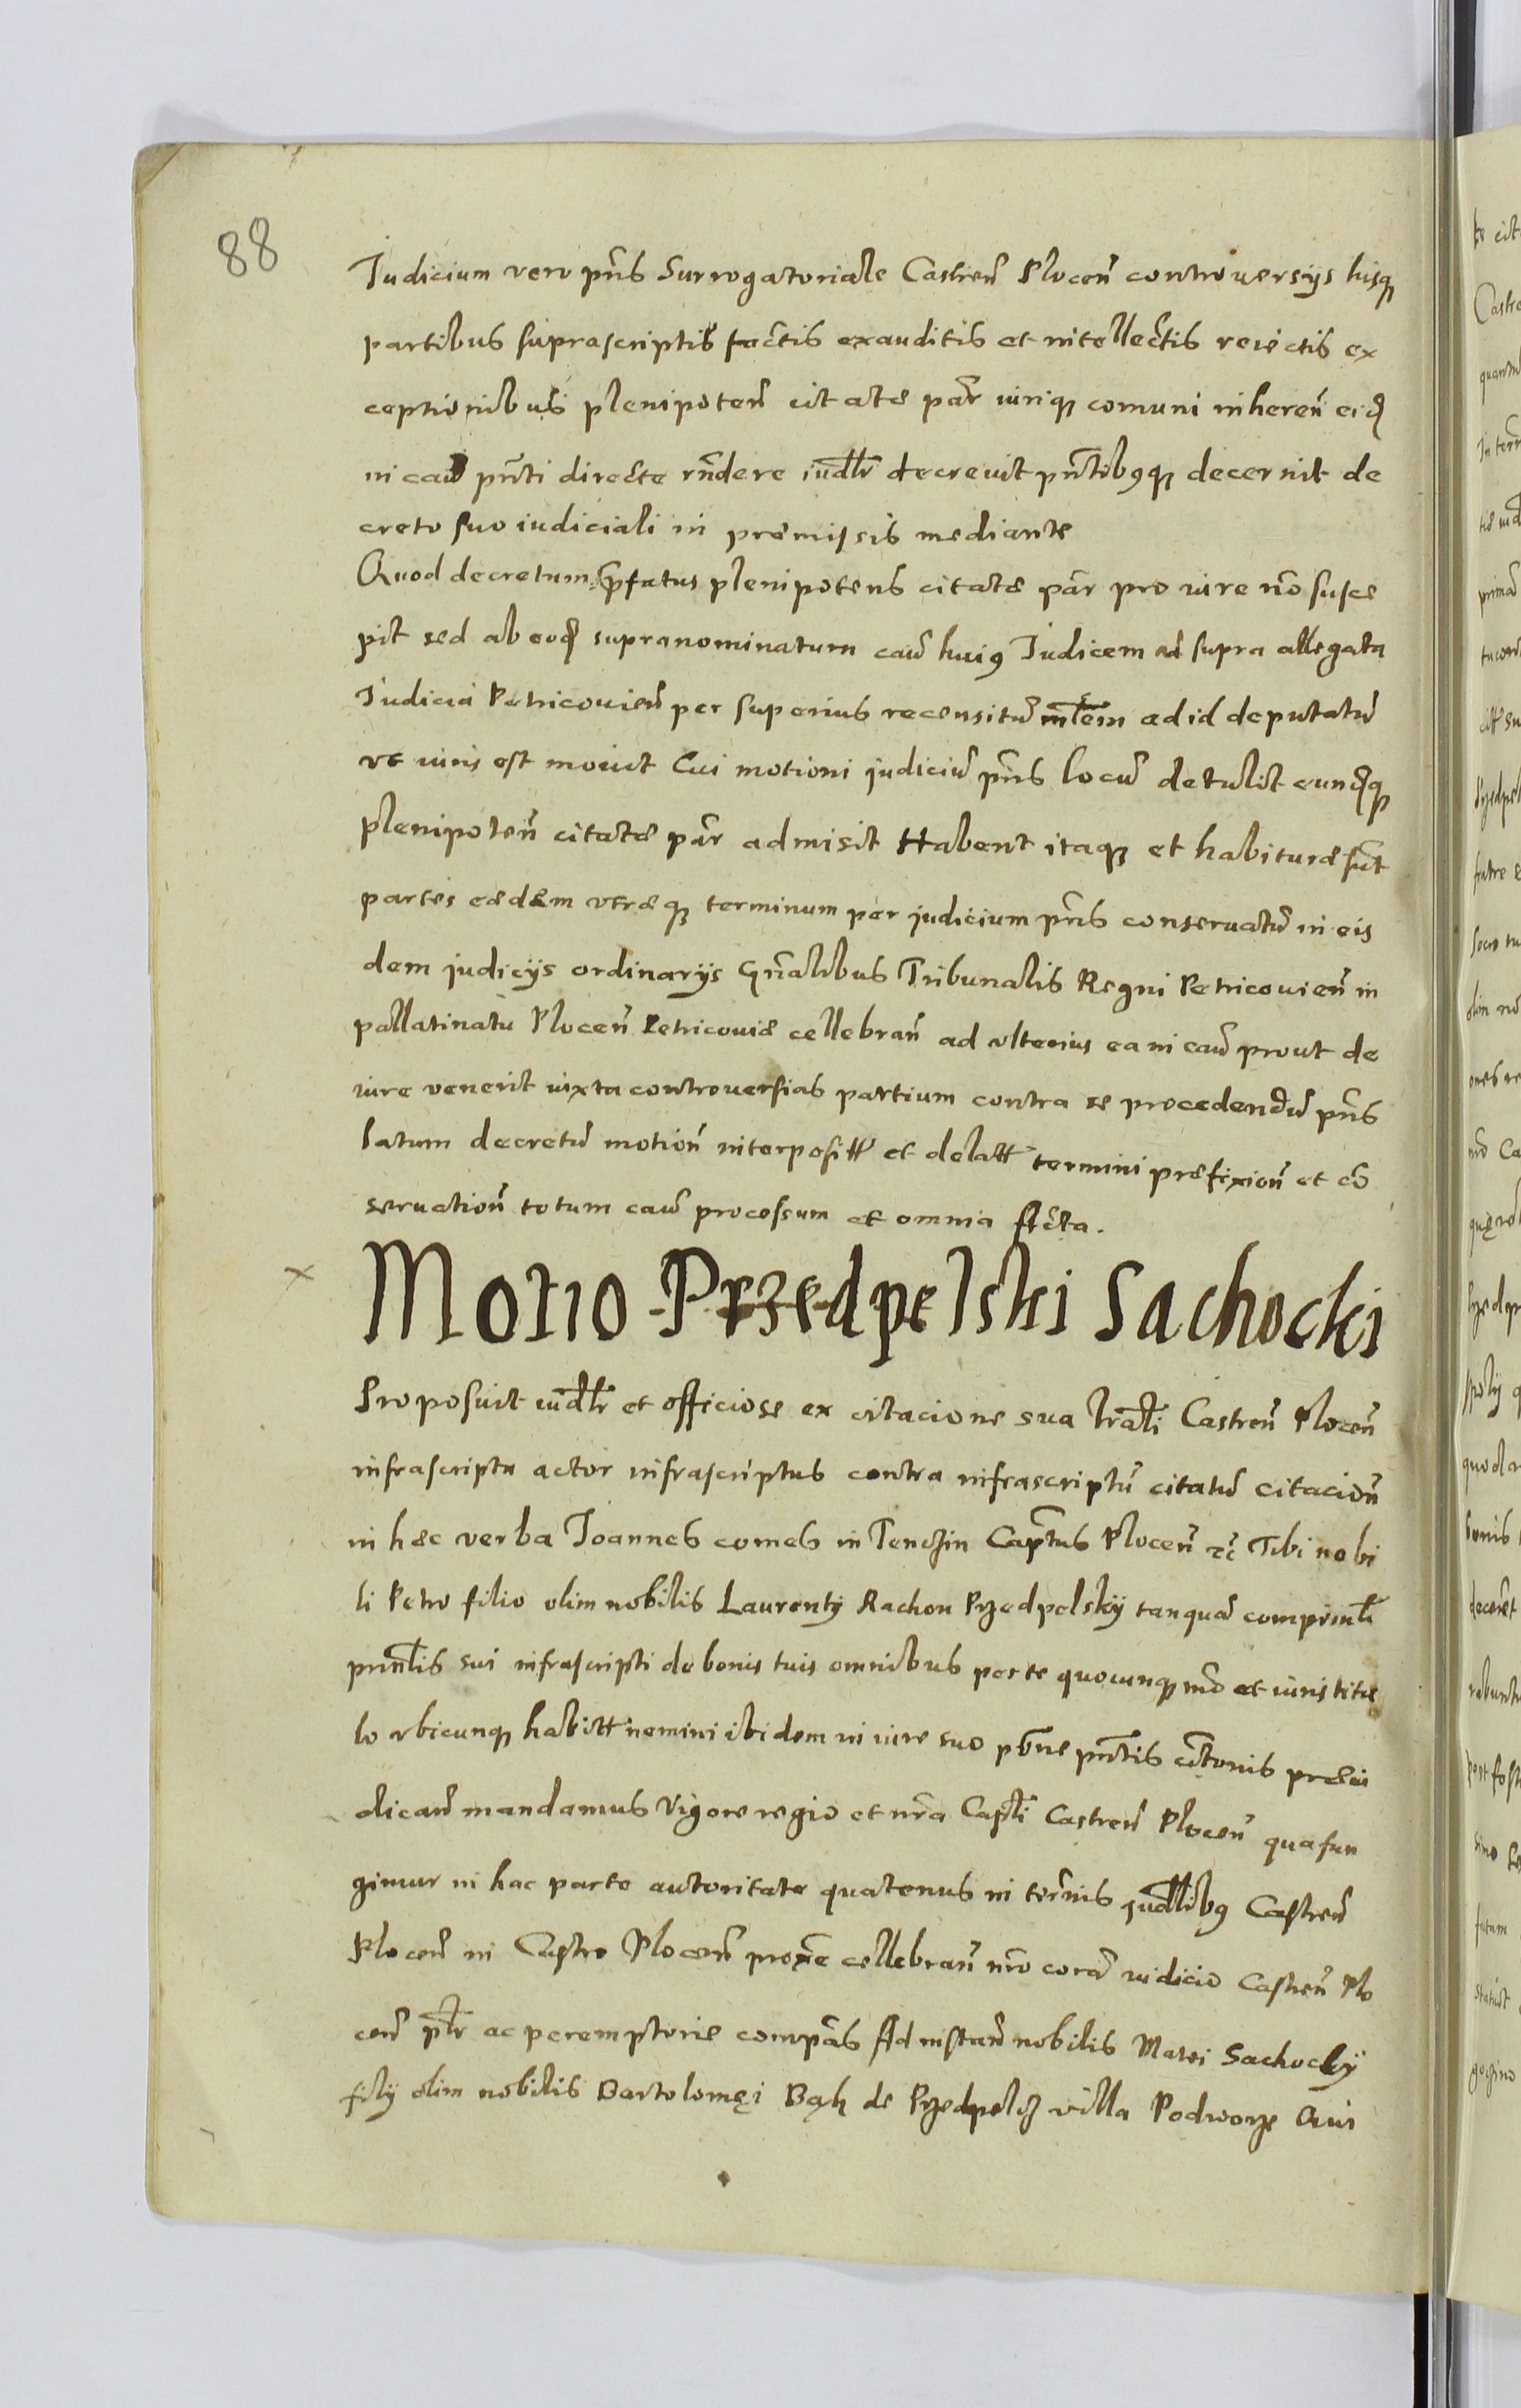 88
Judicium vero pñs Surrogatoriale Castreñ Ploceñ controversijs hisq
partibus suprascriptis factis exauditis et intellectis reiectis ex
ceptionibus plenipoteñ citatæ par iuriq comuni inhereñ eid
in cau pñti directe rñdere iudlr decrevit pñtibusq decernit de
creto suo iudiciali in præmissis mediante
Quod decretum præfatus plenipotens citatæ par pro iure no susce
pit sed ab eod supranominatum cau huius Judicem ad supra allegata
Judicia Petricovieñ per superius recensitu mlem ad id deputatu
ut iuris est movit Cui motioni judiciu pñs locu detulit eundq
plenipoteñ citatæ par admisit Habent itaq et habituræ sut
partes eædem utræq terminum per judicium pñs conservatu in eis
dem judicijs ordinarijs Gñalibus Tribunalis Regni Petricovieñ in
pallatinatu Ploceñ Petricoviæ cellebrañ ad ulterius ea in cau prout de
iure venerit iuxta controversias partium contra se procedendu pñs
latum decretu motioñ interposítt et delatt termini præfixioñ et co
servatioñ totum cau processum et omnia fcta.
x Motio Przedpelski Sachocki
Proposuit iudlr et officiose ex citacione sua lrali Castreñ Ploceñ
infrascripta actor infrascriptus contra infrascriptu citatu citacioñ
in hæc verba Joannes comes in Tenczin Captus Ploceñ etc Tibi nobi
li Petro filio olim nobilis Laurentij Rachon Przedpelskij tanqua comprinli
prinlis sui infrascripti de bonis tuis omnibus per te quocunq mo et iuris titu
lo ubicunq habitt nemini ibidem in iure suo pbne pñtis cittonis præiu
dicañ mandamus Vigore regio et nra Capli Castreñ Ploceñ qua fun
gimur in hac parte autoritate quatenus in termis judlibus Castreñ
Ploceñ in Castro Ploceñ proxe cellebrañ nro cora iudicio Castreñ Plo
ceñ plr ac peremptorie compas Ad instañ nobilis Matei Sachocky
filij olim nobilis Bartolomęi Bąk de Przedpelcz villa Podworze Qui